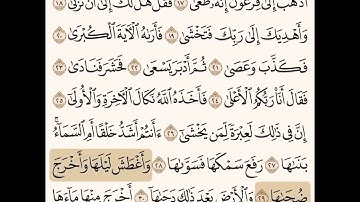 ٱذۡهَبۡ إِلَىٰ فِرۡعَوۡنَ إِنَّهُۥ طَغَىٰ ١٧ فَقُلۡ هَل لَّكَ إِلَىٰٓ أَن تَزَكَّىٰ ١٨
وَأَهۡدِيَكَ إِلَىٰ رَبِّكَ فَتَخۡشَىٰ ١٩ فَأَرَىٰهُ ٱلۡأٓيَةَ ٱلۡكُبۡرَىٰ ٢٠
فَكَذَّبَ وَعَصَىٰ ٢١ ثُمَّ أَدۡبَرَ يَسۡعَىٰ ٢٢ فَحَشَرَ فَنَادَىٰ ٢٣
فَقَالَ أَنَا۠ رَبُّكُمُ ٱلۡأَعۡلَىٰ ٢٤ فَأَخَذَهُ ٱللَّهُ نَكَالَ ٱلۡأٓخِرَةِ وَٱلۡأُولَىٰٓ ٢٥
إِنَّ فِي ذَٰلِكَ لَعِبۡرَةٗ لِّمَن يَخۡشَىٰٓ ٢٦ ءَأَنتُمۡ أَشَدُّ خَلۡقًا أَمِ ٱلسَّمَآءُۚ
بَنَىٰهَا ٢٧ رَفَعَ سَمۡكَهَا فَسَوَّىٰهَا ٢٨ وَأَغۡطَشَ لَيۡلَهَا وَأَخۡرَجَ
ضُحَىٰهَا ٢٩ وَٱلۡأَرۡضَ بَعۡدَ ذَٰلِكَ دَحَىٰهَآ ٣٠ أَخۡرَجَ مِنۡهَا مَآءَهَا